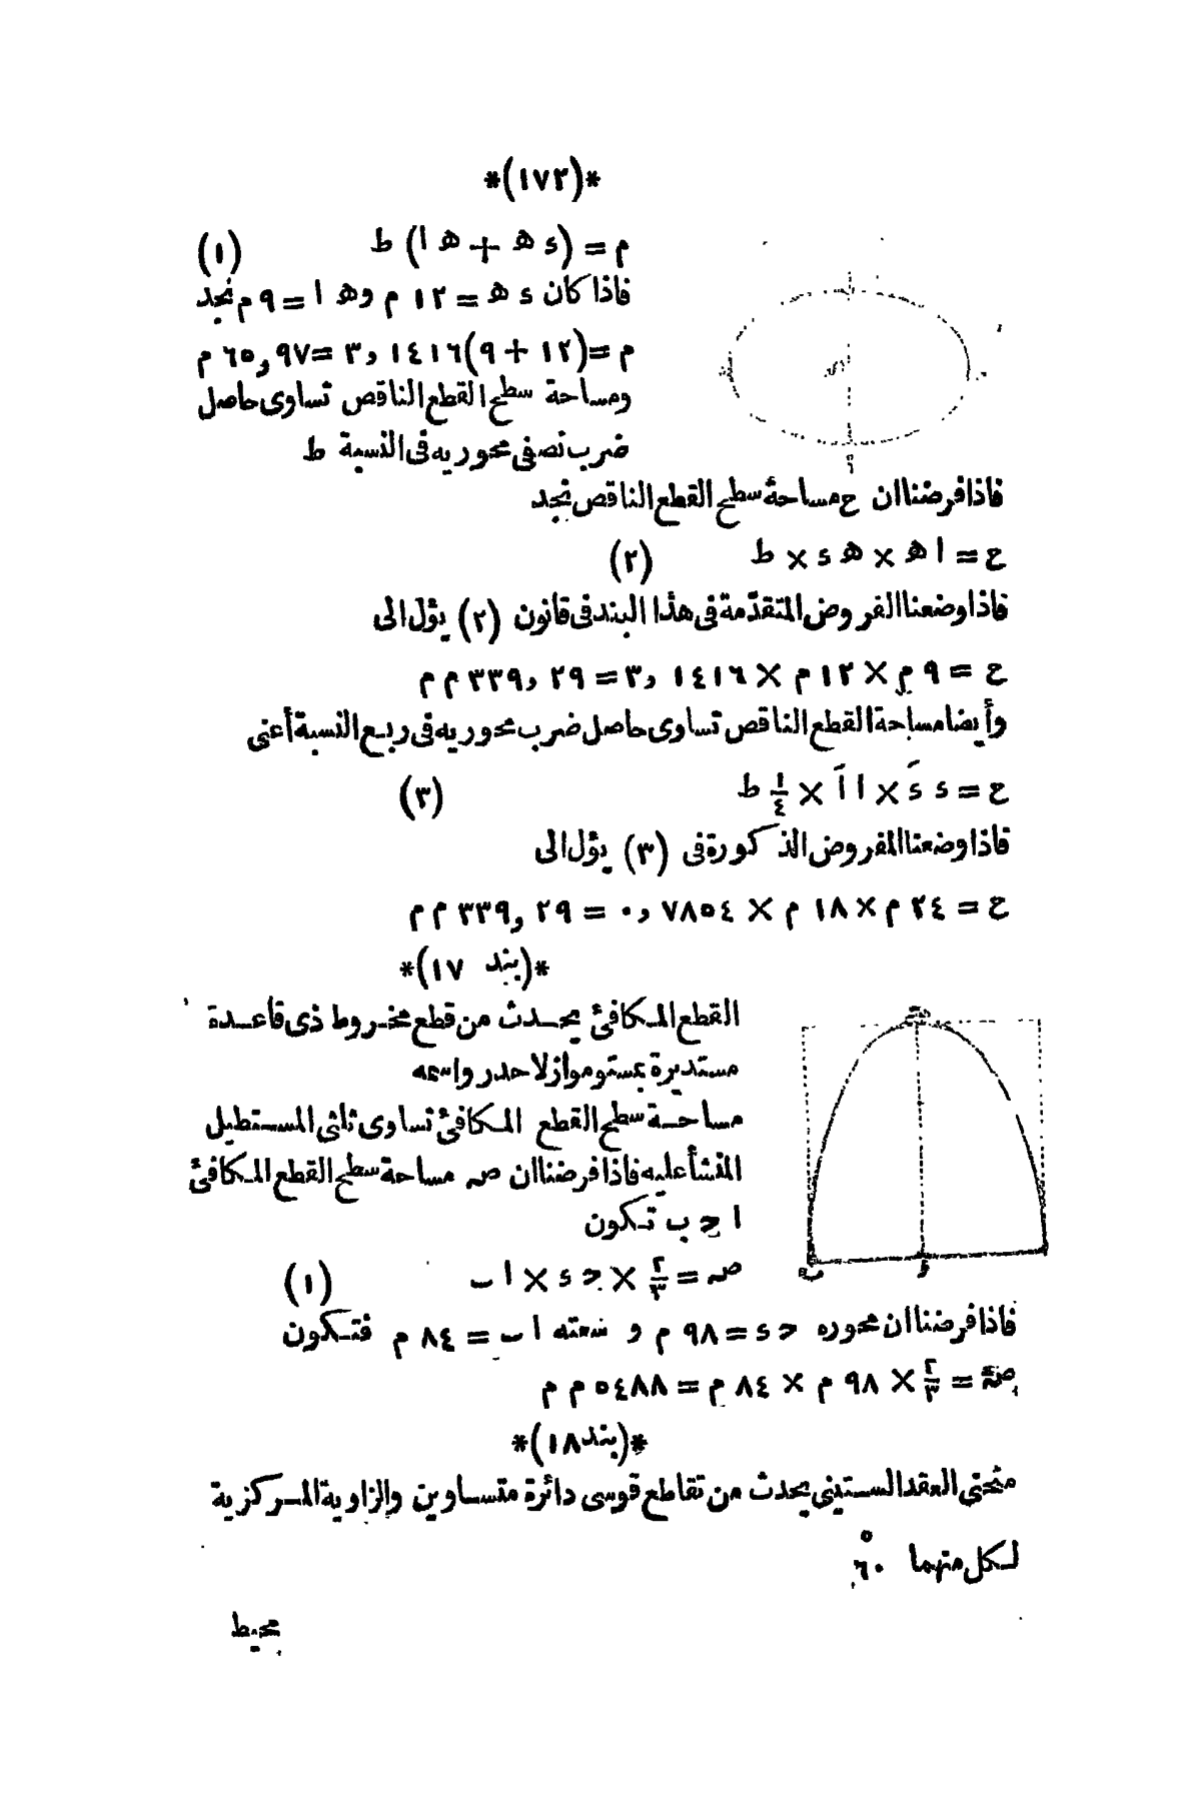 *(١٧٢)*
م = (ء ه + ه ا) ط (١)
فاذا كان ء ه = ١٢ م وه ا = ٩ م نجد
م = (١٢ + ٩) ٣,١٤١٦ = ٦٥,٩٧ م
ومساحة سطح القطع الناقص تساوى حاصل
ضرب نصفى محوريه فى النسبة ط
فاذا فرضنا ان ح مساحة سطح القطع الناقص نجد
ح = ا ه × ه ء × ط (٢)
فاذا وضعنا الفروض المتقدّمة فى هذا البند فى قانون (٢) يؤل الى
ح = ٩ م × ١٢ م × ٣,١٤١٦ = ٣٣٩,٢٩ م م
وأيضا مساحة القطع الناقص تساوى حاصل ضرب محوريه فى ربع النسبة أعنى
ح = ء ءَ × ا اَ × ¼ ط (٣)
فاذا وضعنا المفروض المذكورة فى (٣) يؤل الى
ح = ٢٤ م × ١٨ م × ٠,٧٨٥٤ = ٣٣٩,٢٩ م م
*(بند ١٧)*
القطع المكافئ يحدث من قطع مخروط ذى قاعدة
مستديرة بمستو مواز لاحد رواسمه
مساحة سطح القطع المكافئ تساوى ثلثى المستطيل
المنشأ عليه فاذا فرضنا ان صـ مساحة سطح القطع المكافئ
ا ح ب تكون
صـ = ٢/٣ × ح ء × ا ب (١)
فاذا فرضنا ان محوره ح ء = ٩٨ م و سعته ا ب = ٨٤ م فتكون
صـ = ٢/٣ × ٩٨ م × ٨٤ م = ٥٤٨٨ م م
*(بند ١٨)*
منحنى العقد الستينى يحدث من تقاطع قوسى دائرة متساوين والزاوية المركزية
لكل منهما ٦٠°
محيط